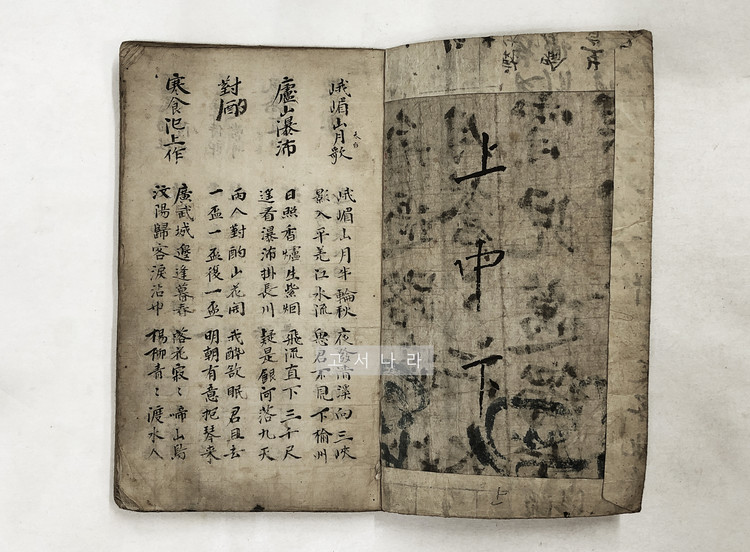 上中下
上
峨嵋山月歌 太白
峨嵋山月半輪秋 夜發清溪向三峽
影入平羌江水流 思君不見下楡州
廬山瀑沛
日照香爐生紫烟 飛流直下三千尺
遙看瀑沛掛長川 疑是銀河落九天
對酌
兩人對酌山花開 我醉欲眠君且去
一盃一盃復一盃 明朝有意抱琴來
寒食汜上作
廣武城邊逢暮春 落花寂〻啼山鳥
汶陽歸客淚沾巾 楊柳青〻渡水人
고서나라